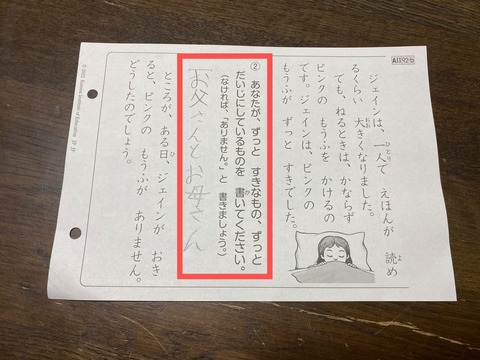 AⅡ192b
ジェインは、一人で えほんが 読め
るくらい 大きくなりました。
でも、ねるときは、かならず
ピンクの もうふを かけるの
です。ジェインは、ピンクの
もうふが ずっと すきでした。
② あなたが、ずっと すきなもの、ずっと
だいじにしているものを 書いてください。
(なければ、「ありません。」と 書きましょう。)
お父さんとお母さん
ところが、ある日、ジェインが おき
ると、ピンクの もうふが ありません。
どうしたのでしょう。